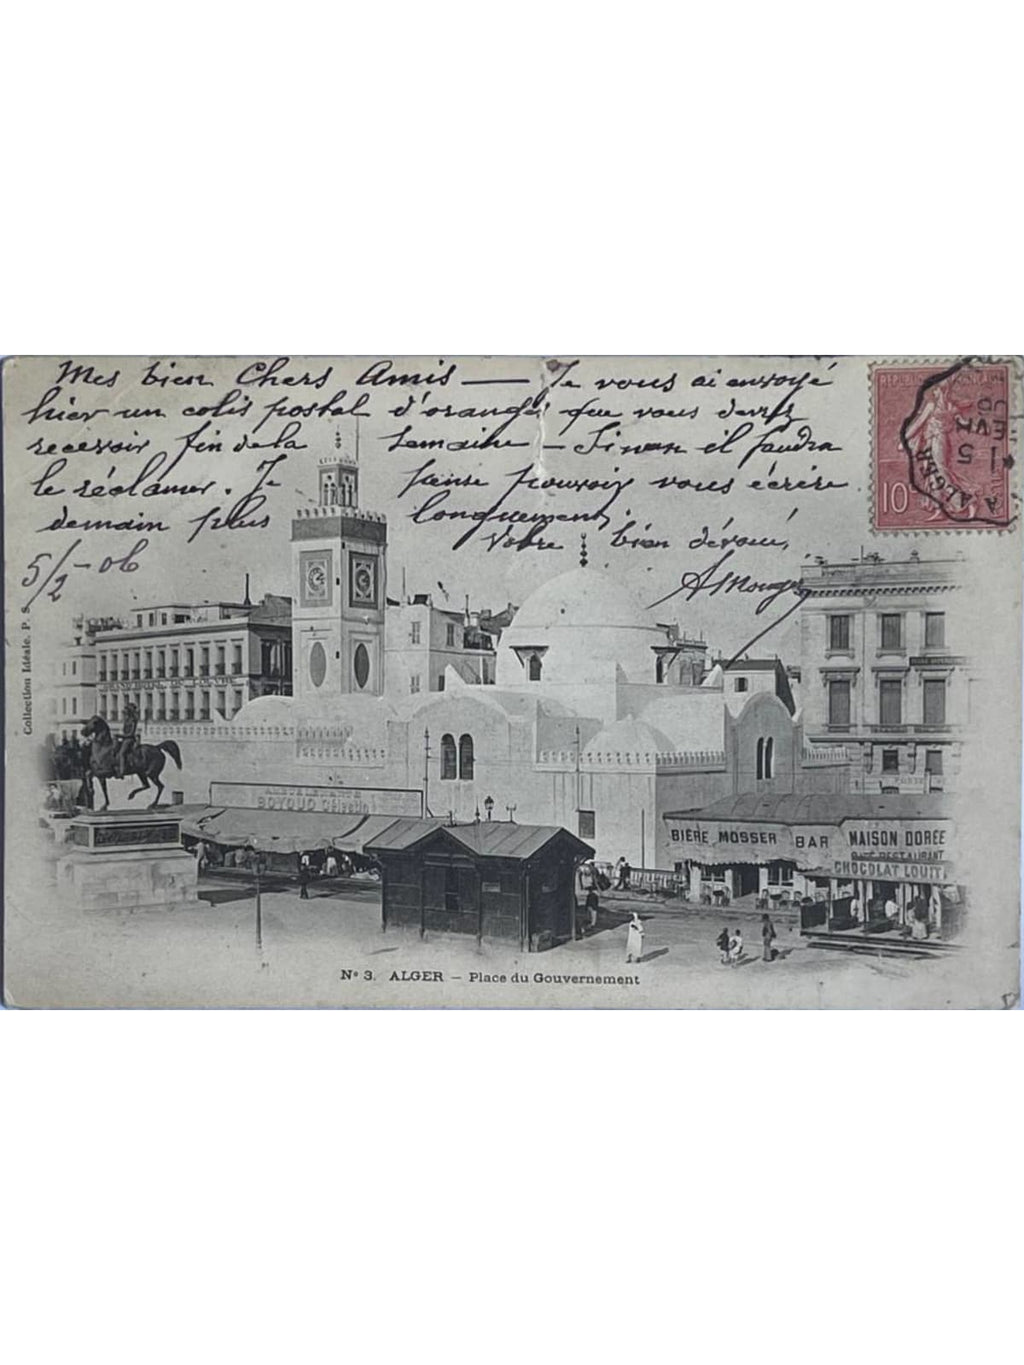 Mes bien Chers Amis — Je vous ai envoyé
hier un colis postal d'oranges que vous devez
recevoir fin de la semaine — Sinon il faudra
le réclamer. Je pense pouvoir vous écrire
demain plus longuement,
Votre bien dévoué,
5/2 - 06
10
ALGER
5
Collection Idéale. P. S.
BOYOUD Célestin
BIÈRE MOSSER BAR
MAISON DORÉE
CAFÉ RESTAURANT
CHOCOLAT LOUIT
No 3. ALGER — Place du Gouvernement